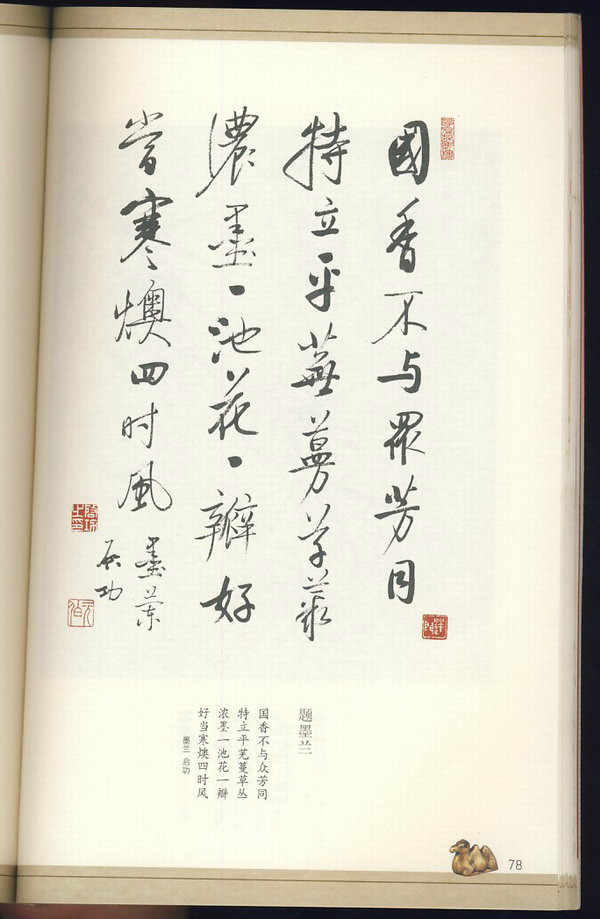 國香不与眾芳同
特立平蕪蔓草叢
濃墨一池花一瓣好
當寒燠四时風 墨蘭
启功
题墨兰
国香不与众芳同
特立平芜蔓草丛
浓墨一池花一瓣
好当寒燠四时风
墨兰 启功
78